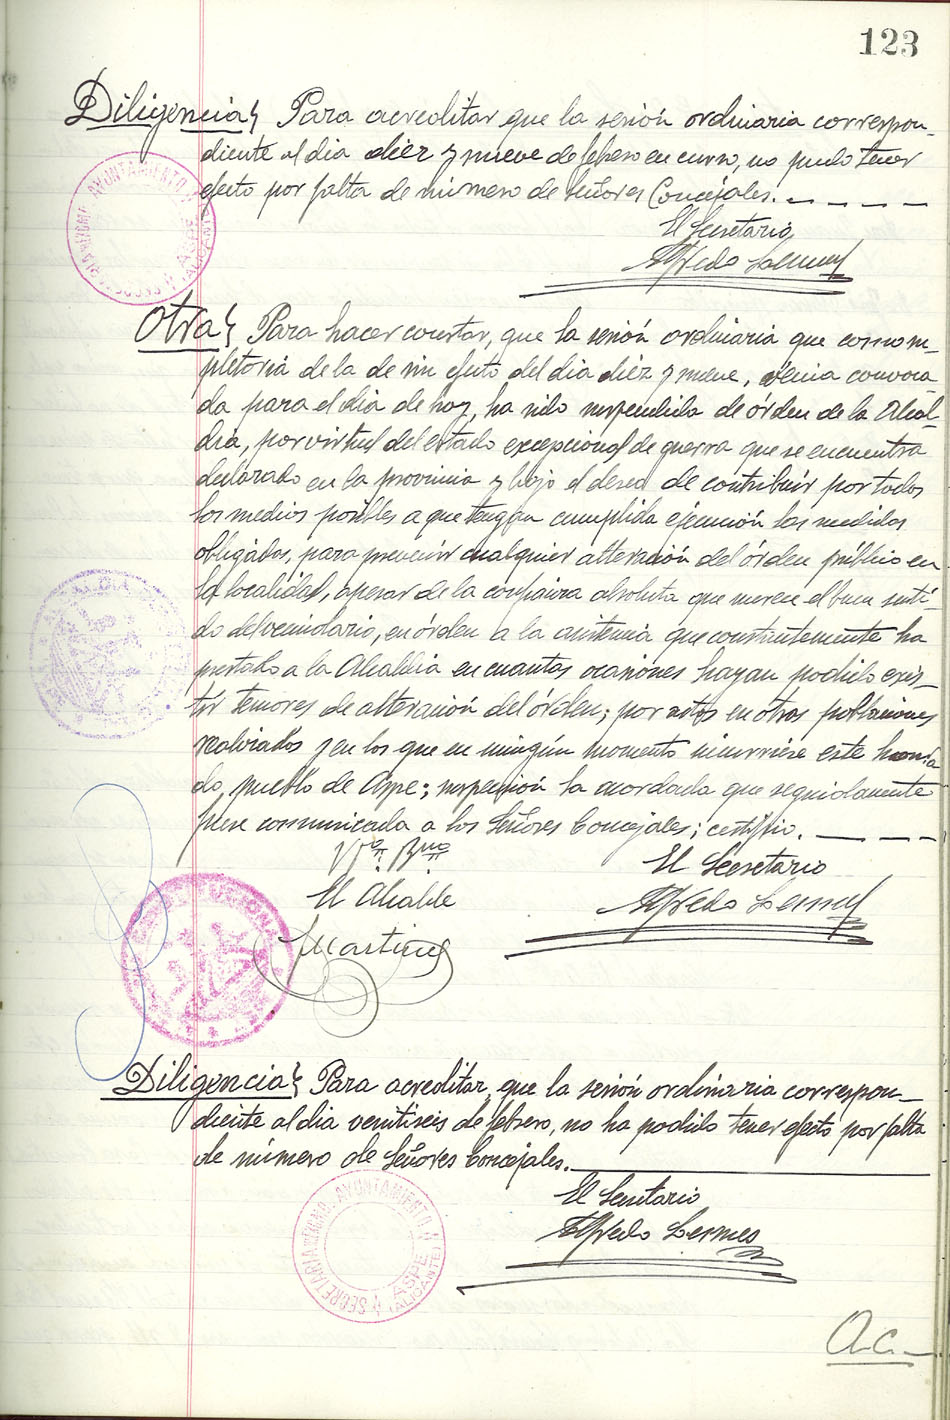 123
Diligencia} Para acreditar que la sesión ordinaria correspon-
diente al dia diez y nueve de febrero en curso, no pudo tener
efecto por falta de número de Señores Concejales.
El Secretario
Alfredo
Otra} Para hacer constar, que la sesión ordinaria que como su-
pletoria de la de sin efecto del dia diéz y nueve, venia convoca-
da para el dia de hoy, ha sido suspendida de órden de la Alcal-
dia, por virtud del estado excepcional de guerra que se encuentra
declarado en la provincia y bajo el deseo de contribuir por todos
los medios posibles a que tengan cumplida ejecución las medidas
obligadas, para prevenir cualquier alteración del órden público en
la localidad, apesar de la confianza absoluta que merece el buen senti-
do del vecindario, en órden a la asistencia que constantemente ha
prestado a la Alcaldia en cuantas ocasiones hayan podido exis-
tir temores de alteración del órden; por actos en otras poblaciones
realizados y en los que en ningún momento incurriese este honra-
do, pueblo de Aspe; suspensión la acordada que seguidamente
fuese comunicada a los Señores Concejales; certifico.
Vº Bno
El Alcalde
Martinez
El Secretario
Alfredo
Diligencia} Para acreditar, que la sesión ordinaria correspon-
diente al dia veintiseis de febrero, no ha podido tener efecto por falta
de número de Señores Concejales.
El Secretario
Alfredo
SECRETARIA DEL EXCMO. AYUNTAMIENTO
ASPE
(ALICANTE)
A.C.-